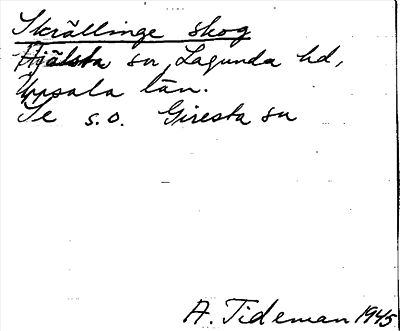 Skrällinge skog
Hjälsta sn, Lagunda hd,
Uppsala län.
Se s.o. Giresta sn
A. Tideman 1945